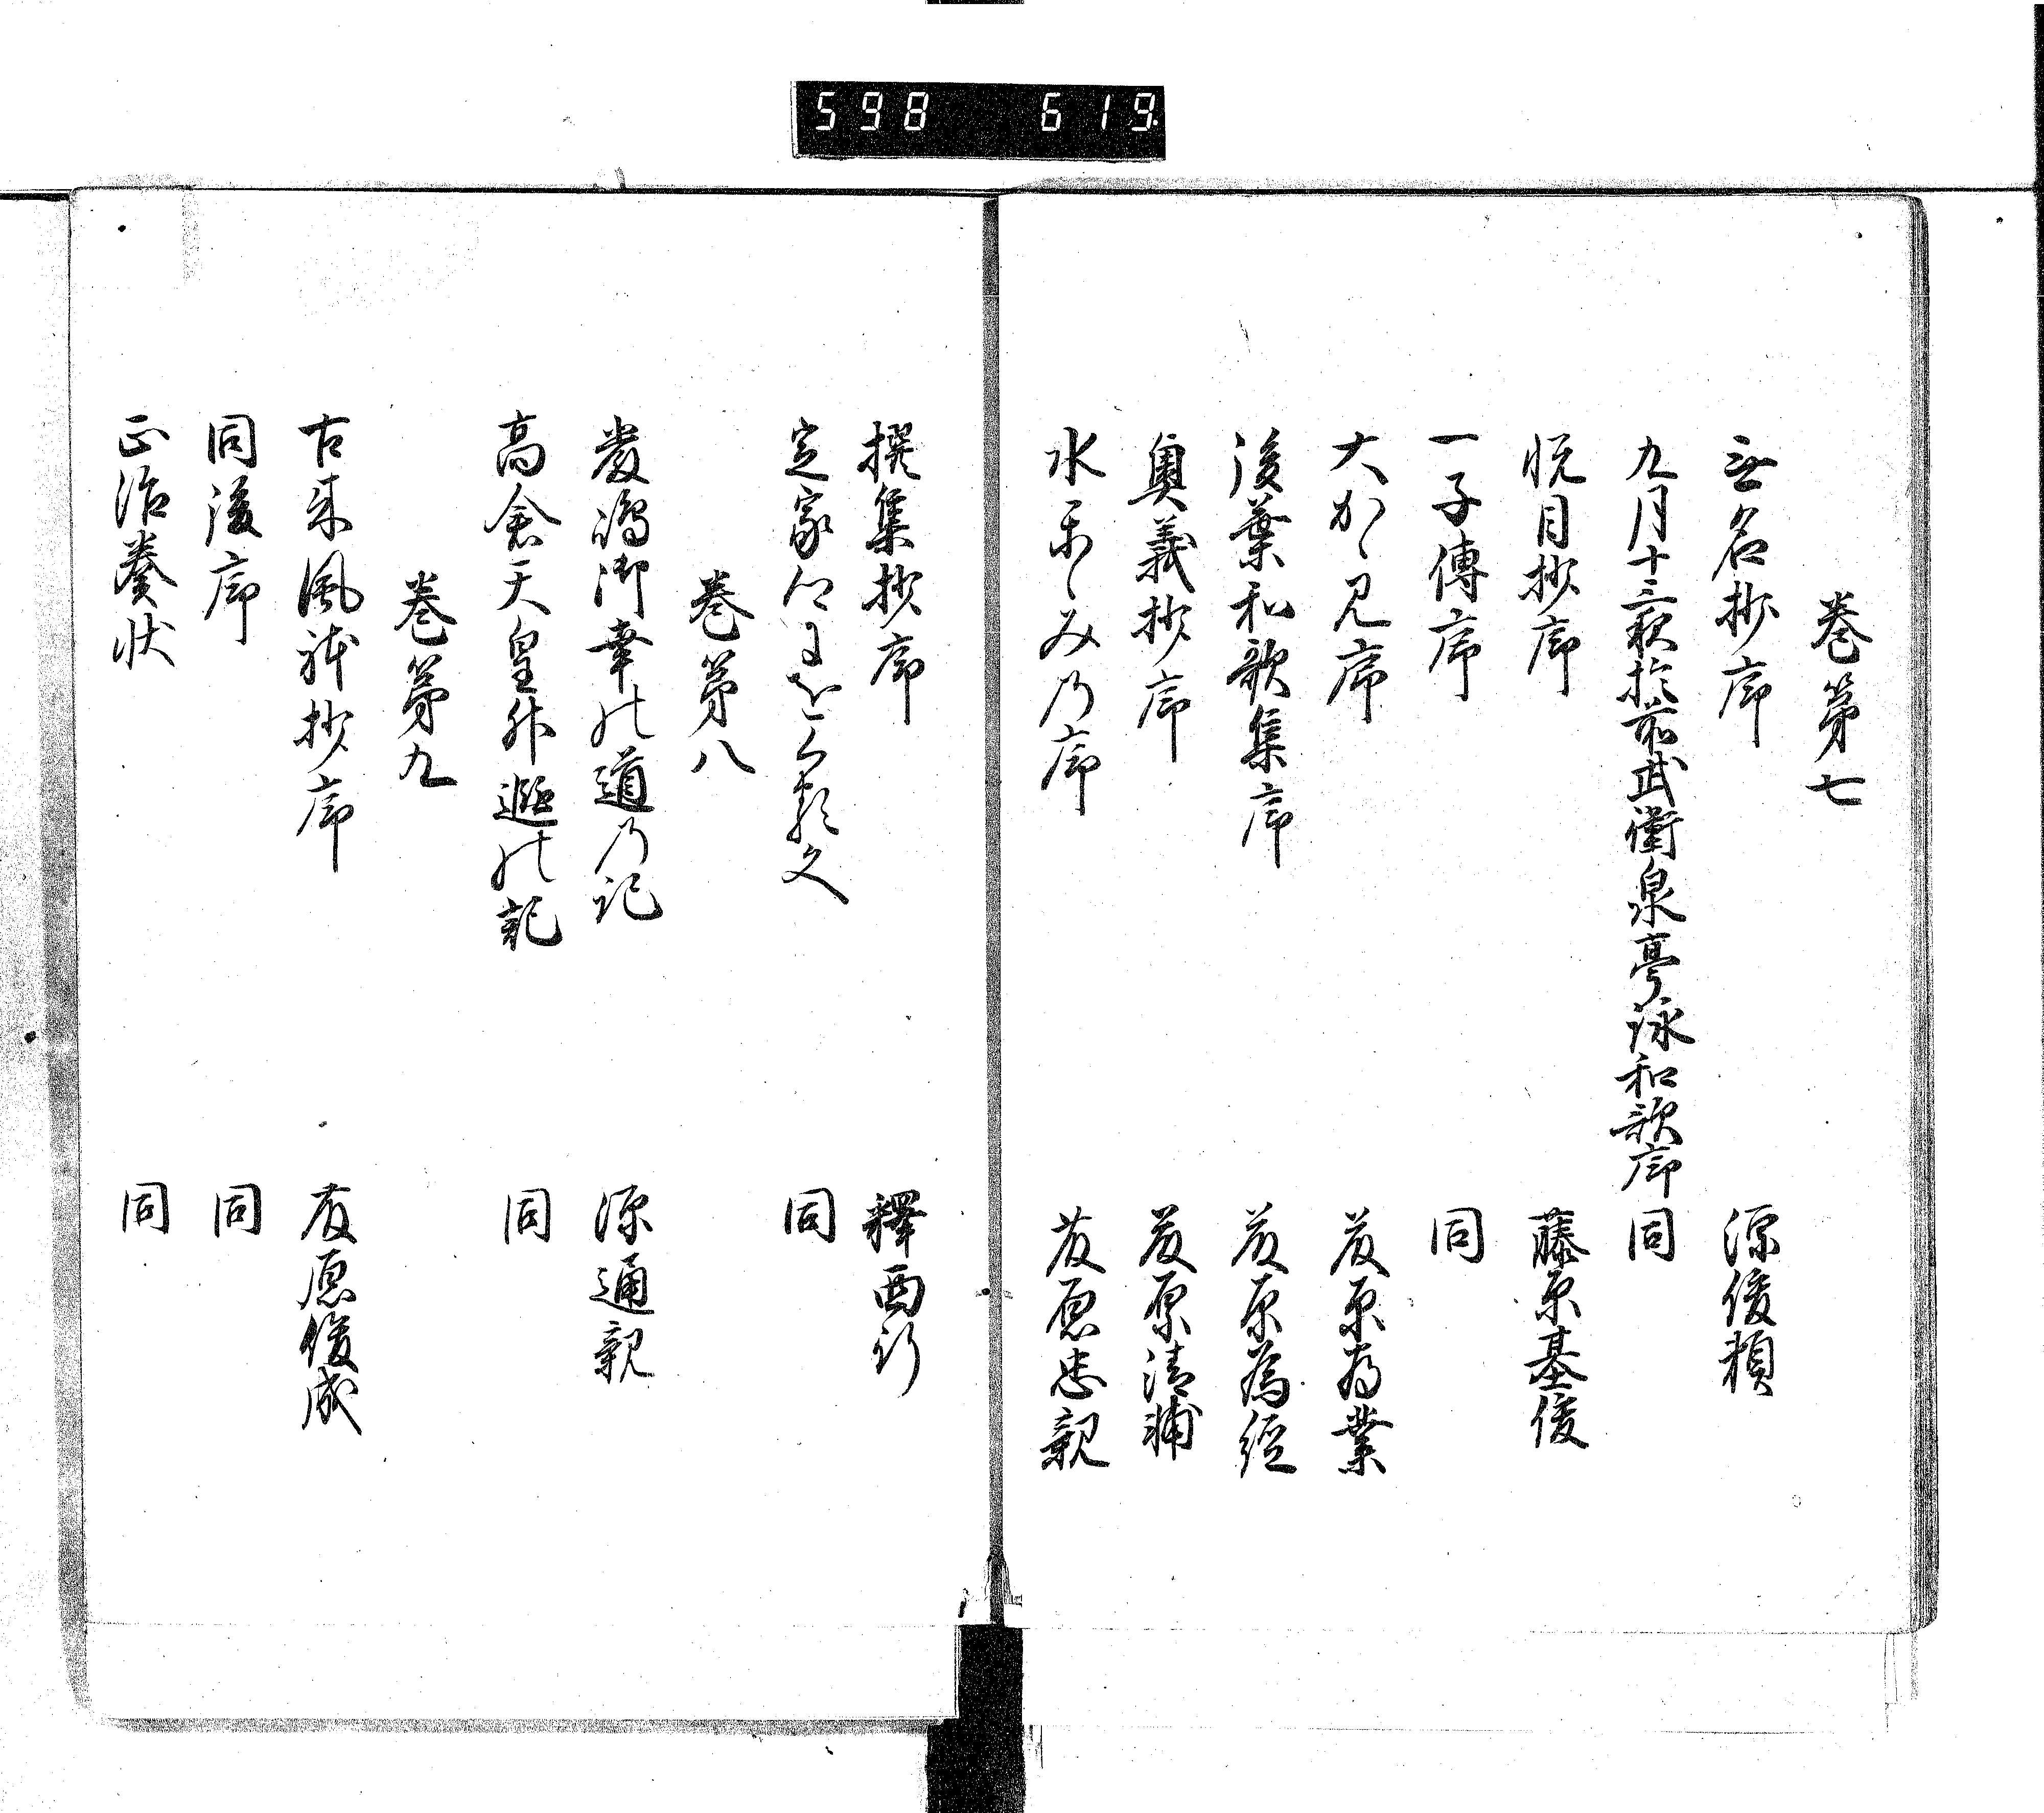 598 619
巻第七
無名抄序 源俊頼
九月十三夜於前武衛泉亭詠和歌序 同
悦目抄序 藤原基俊
一子傳序 同
大かゝ見序 藤原為業
後葉和歌集序 藤原為經
奥義抄序 藤原清輔
水かゝみ乃序 藤原忠親
撰集抄序 釋西行
定家に をくる文 同
巻第八
嚴嶋御幸の道乃記 源通親
高倉天皇升遐の記 同
巻第九
古来風躰抄序 藤原俊成
同後序 同
正治奏状 同